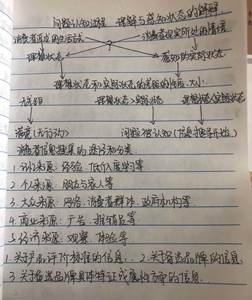 问题认知过程 理想与感知状态的缺解
消费者追求的生活方式 消费者现实所处的情境
?
理想状态 感知的实际状态
理想状态和实际状态的差距的性质、大小
无差距 理想状态>实际状态 理想状态<实际状态
满意(无行动) 问题被认知(信息搜集开始)
消费者信息搜集的途径和分类
1. 记忆来源:经验、低介入度学习等
2. 个人来源:朋友与家人等
3. 大众来源:网络、消费者群体、政府机构等
4. 商业来源:广告、推销员等
5. 经济来源:观察、体验等
1. 关于产品评价标准的信息. 2. 关于备选品牌的信息.
3. 关于备选品牌具体特征或属性方面的信息.